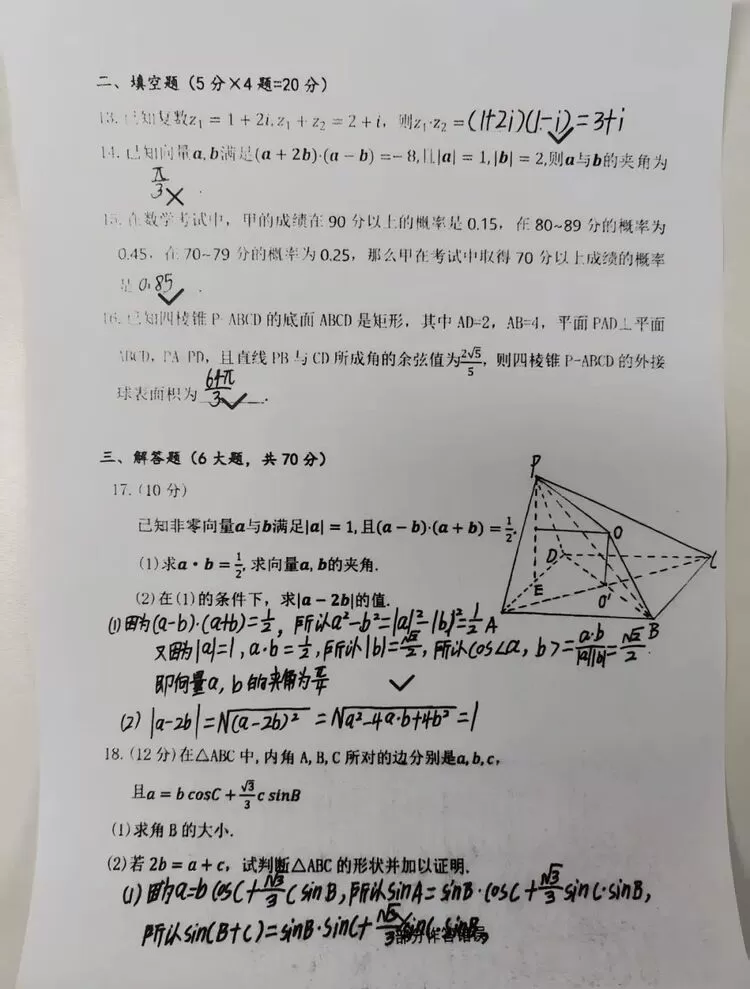 二、填空题（5分×4题=20分）
13. 已知复数z₁ = 1 + 2i, z₁ + z₂ = 2 + i, 则z₁·z₂ = (1+2i)(1-i)=3+i
14. 已知向量a,b满足(a + 2b)·(a − b) = −8,且|a| = 1,|b| = 2,则a与b的夹角为
π/3 .
15. 在数学考试中，甲的成绩在90分以上的概率是0.15，在80~89分的概率为
0.45，在70~79分的概率为0.25，那么甲在考试中取得70分以上成绩的概率
是 0.85 .
16. 已知四棱锥P-ABCD的底面ABCD是矩形，其中AD=2，AB=4，平面PAD⊥平面
ABCD，PA=PD，且直线PB与CD所成角的余弦值为2√5/5，则四棱锥P-ABCD的外接
球表面积为 64π/3 .
三、解答题（6大题，共70分）
17. (10分)
已知非零向量a与b满足|a| = 1,且(a − b)·(a + b) = 1/2.
(1)求a·b = 1/2,求向量a,b的夹角.
(2)在(1)的条件下，求|a − 2b|的值.
P
O
D
C
E
O'
A
B
(1)因为(a-b)·(a+b)=1/2，所以a²-b²=|a|²-|b|²=1/2
又因为|a|=1,a·b=1/2,所以|b|=√2/2,所以cos<a,b>=a·b/|a||b|=√2/2.
即向量a,b的夹角为π/4
(2) |a-2b|=√(a-2b)² =√a²-4a·b+4b² =1
18. (12分)在△ABC中,内角A,B,C所对的边分别是a,b,c,
且a = b cosC + √3/3 c sinB
(1)求角B的大小.
(2)若2b = a + c，试判断△ABC的形状并加以证明.
(1)因为a=b cosC+√3/3 c sinB,所以sinA=sinB·cosC+√3/3 sinC·sinB,
所以sin(B+C)=sinB·sinC+√3/3 sinC·sinB,
部分作答错误